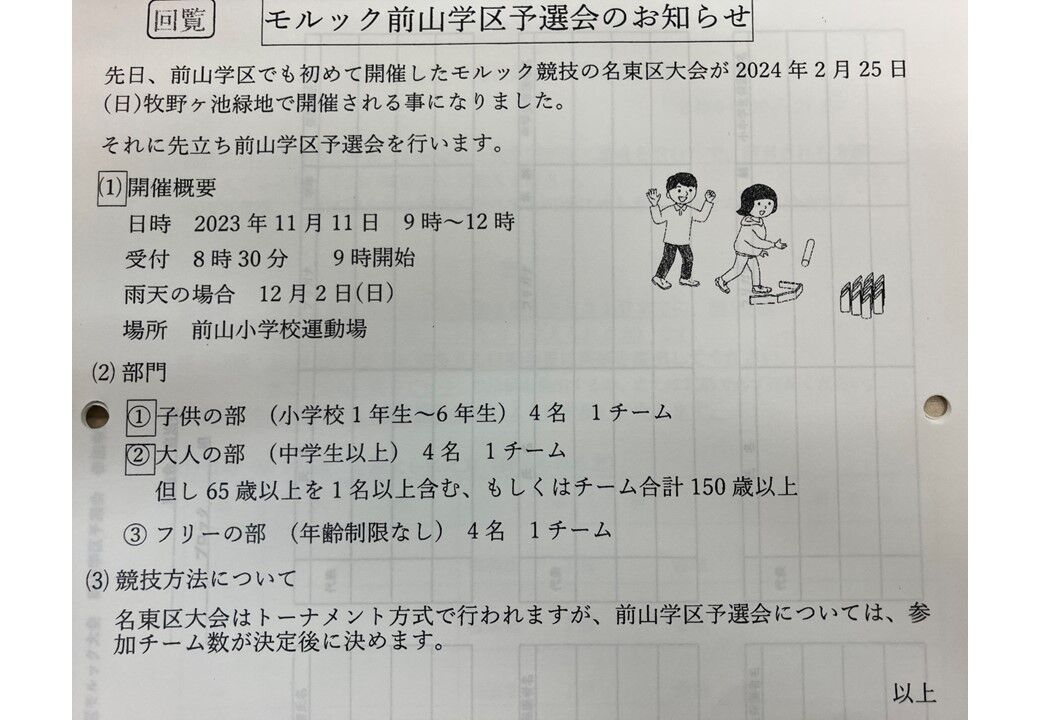 回覧
モルック前山学区予選会のお知らせ
先日、前山学区でも初めて開催したモルック競技の名東区大会が 2024 年 2 月 25 日
(日)牧野ヶ池緑地で開催される事になりました。
それに先立ち前山学区予選会を行います。
(1) 開催概要
日時 2023 年 11 月 11 日 9 時～12 時
受付 8 時 30 分 9 時開始
雨天の場合 12 月 2 日(日)
場所 前山小学校運動場
(2) 部門
① 子供の部 (小学校 1 年生～6 年生) 4 名 1 チーム
② 大人の部 (中学生以上) 4 名 1 チーム
但し 65 歳以上を 1 名以上含む、もしくはチーム合計 150 歳以上
③ フリーの部 (年齢制限なし) 4 名 1 チーム
(3) 競技方法について
名東区大会はトーナメント方式で行われますが、前山学区予選会については、参
加チーム数が決定後に決めます。
以上